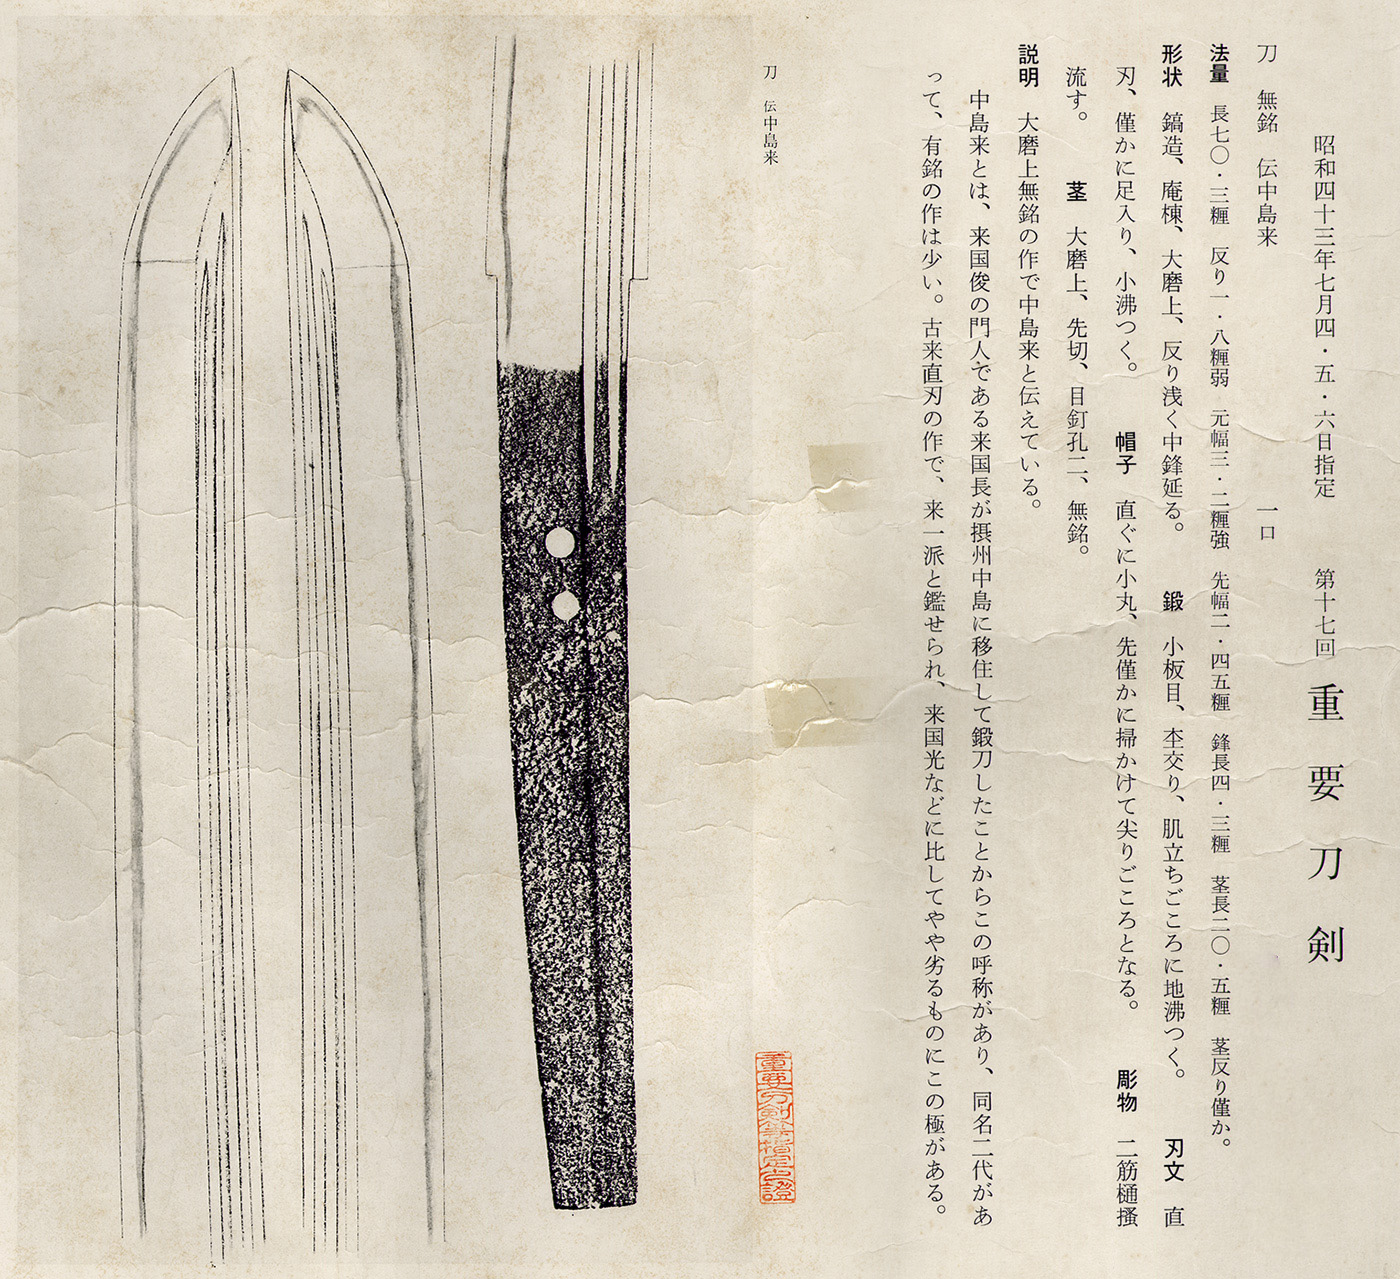 昭和四十三年七月四・五・六日指定　第十七回　重要刀剣
刀　無銘　伝中島来　一口
法量　長七〇・三糎　反り一・八糎弱　元幅三・二糎強　先幅二・四五糎　鋒長四・三糎　茎長二〇・五糎　茎反り僅か。
形状　鎬造、庵棟、大磨上、反り浅く中鋒延る。　鍛　小板目、杢交り、肌立ちごころに地沸つく。　刃文　直
刃、僅かに足入り、小沸つく。　帽子　直ぐに小丸、先僅かに掃かけて尖りごころとなる。　彫物　二筋樋搔
流す。　茎　大磨上、先切、目釘孔二、無銘。
説明　大磨上無銘の作で中島来と伝えている。
中島来とは、来国俊の門人である来国長が摂州中島に移住して鍛刀したことからこの呼称があり、同名二代があ
って、有銘の作は少い。古来直刃の作で、来一派と鑑せられ、来国光などに比してやや劣るものにこの極がある。
刀　伝中島来
重要刀剣等指定之證